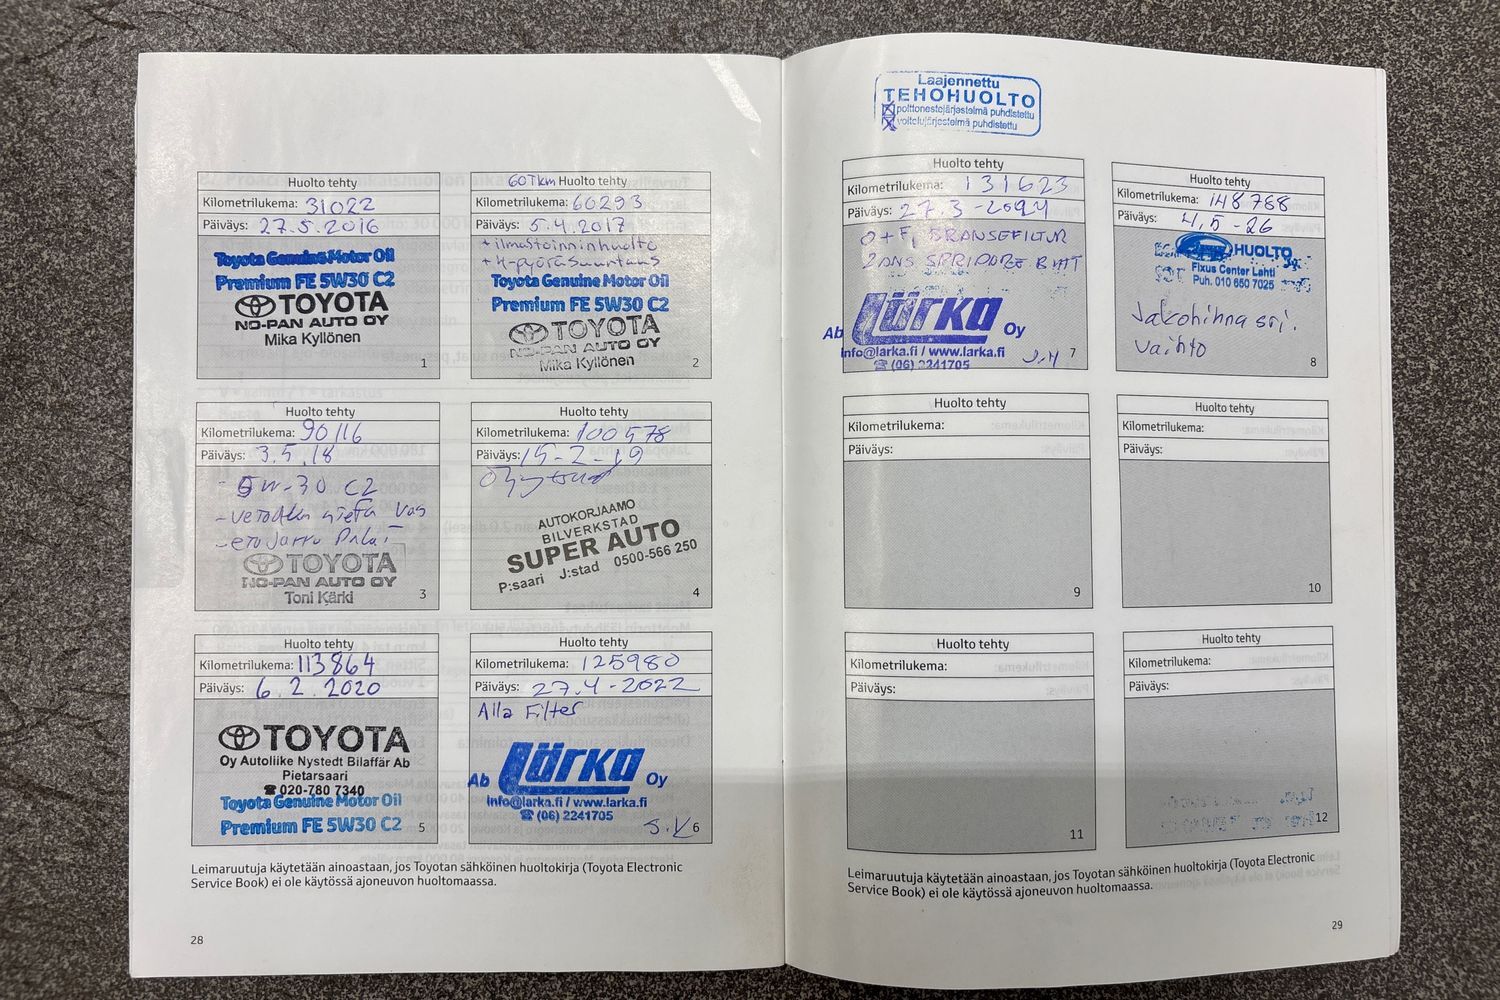 Huolto tehty
Kilometrilukema: 31022
Päiväys: 27.5.2016
Toyota Genuine Motor Oil
Premium FE 5W30 C2
TOYOTA
NO-PAN AUTO OY
Mika Kyllönen
1
60Tkm Huolto tehty
Kilometrilukema: 60293
Päiväys: 5.4.2017
+ilmastoinninhuolto
+4-pyöräsuuntaus
Toyota Genuine Motor Oil
Premium FE 5W30 C2
TOYOTA
NO-PAN AUTO OY
Mika Kyllönen
2
Huolto tehty
Kilometrilukema: 90116
Päiväys: 3.5.18
- 5W-30 C2
- vetoakselin
- etujarru
TOYOTA
NO-PAN AUTO OY
Toni Kärki
3
Huolto tehty
Kilometrilukema: 100578
Päiväys: 15-2-19
AUTOKORJAAMO
BILVERKSTAD
SUPER AUTO
P:saari J:stad 0500-566 250
4
Huolto tehty
Kilometrilukema: 113864
Päiväys: 6.2.2020
TOYOTA
Oy Autoliike Nystedt Bilaffär Ab
Pietarsaari
☎ 020-780 7340
Toyota Genuine Motor Oil
Premium FE 5W30 C2
5
Huolto tehty
Kilometrilukema: 125980
Päiväys: 27.4-2022
Alla Filter
Ab Lärka Oy
info@larka.fi / www.larka.fi
☎ (06) 2241705
S.K
6
Leimaruutuja käytetään ainoastaan, jos Toyotan sähköinen huoltokirja (Toyota Electronic
Service Book) ei ole käytössä ajoneuvon huoltomaassa.
28
Laajennettu
TEHOHUOLTO
polttonestejärjestelmä puhdistettu
voitelujärjestelmä puhdistettu
Huolto tehty
Kilometrilukema: 131623
Päiväys: 27.3-2024
O+F, BRÄNSLEFILTER
Ab Lärka Oy
info@larka.fi / www.larka.fi
☎ (06) 2241705
7
Huolto tehty
Kilometrilukema: 148768
Päiväys: 4.5-26
HUOLTO
Fixus Center Lahti
Puh. 010 650 7025
Jakohihna srj.
vaihto
8
Huolto tehty
Kilometrilukema:
Päiväys:
9
Huolto tehty
Kilometrilukema:
Päiväys:
10
Huolto tehty
Kilometrilukema:
Päiväys:
11
Huolto tehty
Kilometrilukema:
Päiväys:
12
Leimaruutuja käytetään ainoastaan, jos Toyotan sähköinen huoltokirja (Toyota Electronic
Service Book) ei ole käytössä ajoneuvon huoltomaassa.
29